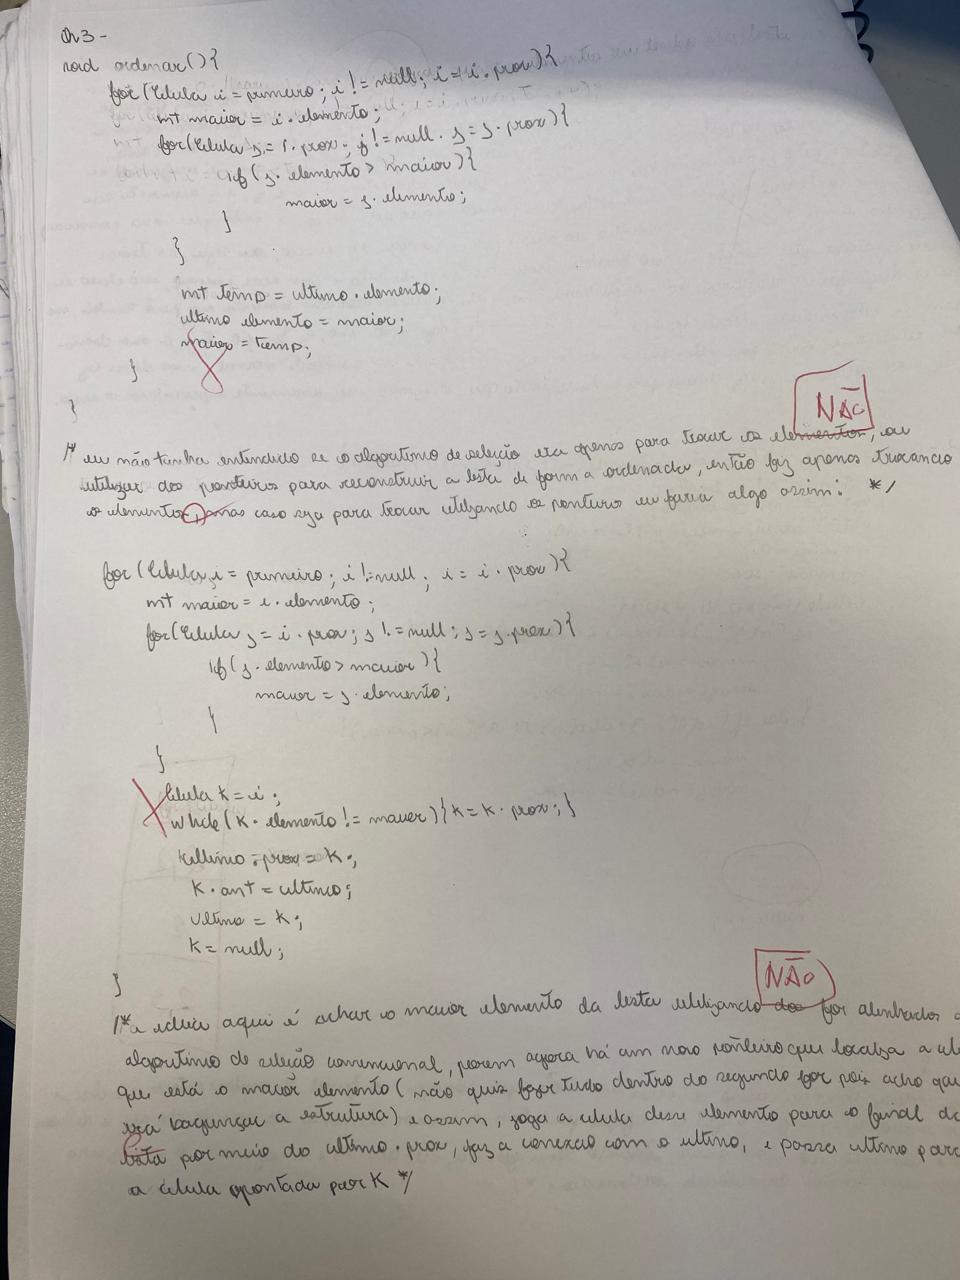 Q3 -
void ordenar(){
for(Celula i = primeiro; i != null; i = i.prox){
int maior = i.elemento;
for(Celula j = i.prox; j != null. j = j.prox){
if(j.elemento > maior){
maior = j.elemento;
}
}
int temp = ultimo.elemento;
ultimo elemento = maior;
maior = temp;
}
}
NÃO
/* eu não tinha entendido se o algoritimo de seleção era apenas para trocar os elementos, ou
utilizar dos ponteiros para reconstruir a lista de forma ordenada, então fiz apenas trocando
os elementos, mas caso seja para trocar utilizando os ponteiros eu faria algo assim: */
for(Celula i = primeiro; i != null; i = i.prox){
int maior = i.elemento;
for(Celula j = i.prox; j != null; j = j.prox){
if(j.elemento > maior){
maior = j.elemento;
}
}
Celula k = i;
while(k.elemento != maior){k = k.prox;}
ultimo.prox = k;
k.ant = ultimo;
ultimo = k;
k = null;
}
NÃO
/*a ideia aqui é achar o maior elemento da lista utilizando dos for alinhados
algoritimo de seleção convencional, porem agora há um novo ponteiro que localiza a
que está o maior elemento (não quis fazer tudo dentro do segundo for pois acho que
irá bagunçar a estrutura) e assim, joga a celula desse elemento para o final da
lista por meio do ultimo.prox, faz a conexão com o ultimo, e passa ultimo para
a celula apontada por K */